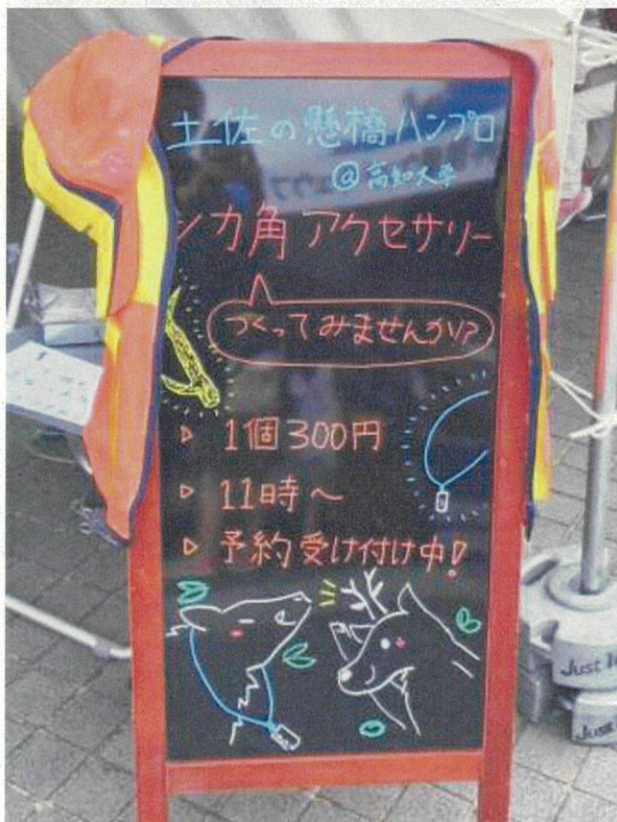 土佐の懸橋ハンプロ
@高知大学
シカ角アクセサリー
つくってみませんか!?
▷ 1個300円
▷ 11時～
▷ 予約受け付け中!
Just
Just